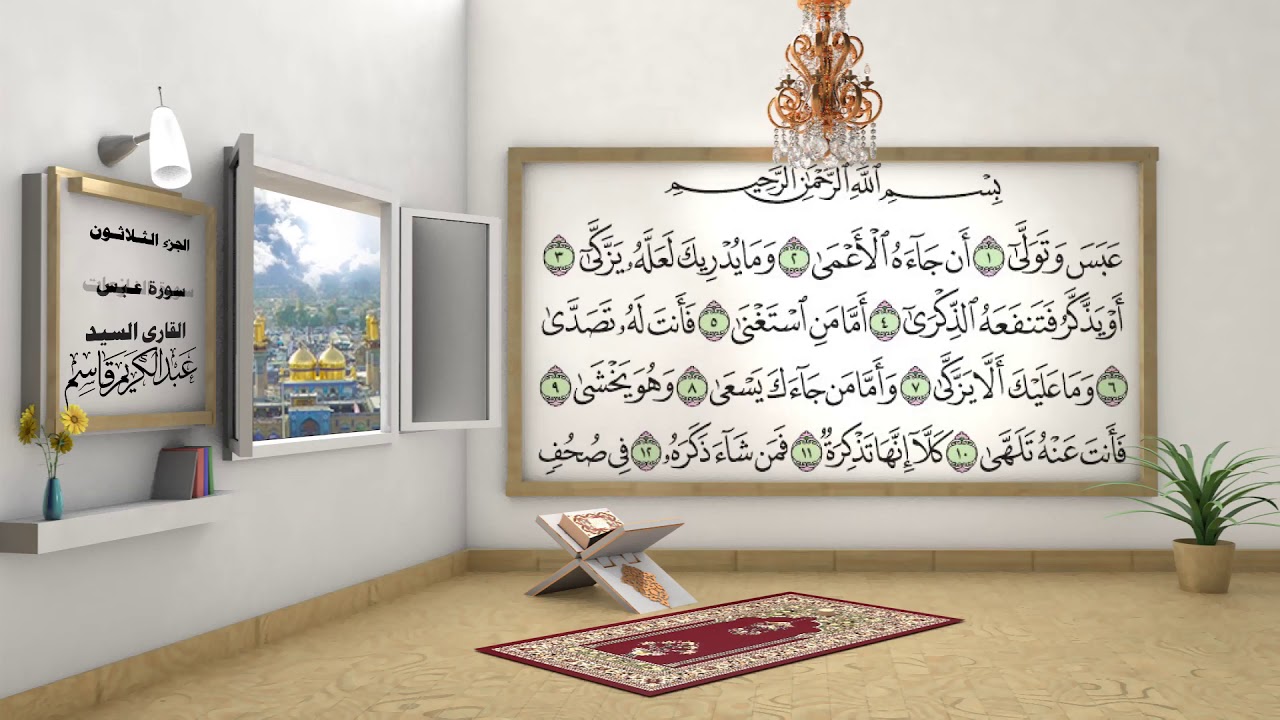 بِسْمِ ٱللَّهِ ٱلرَّحْمَٰنِ ٱلرَّحِيمِ
عَبَسَ وَتَوَلَّىٰٓ ١ أَن جَآءَهُ ٱلْأَعْمَىٰ ٢ وَمَا يُدْرِيكَ لَعَلَّهُۥ يَزَّكَّىٰٓ ٣
أَوْ يَذَّكَّرُ فَتَنفَعَهُ ٱلذِّكْرَىٰٓ ٤ أَمَّا مَنِ ٱسْتَغْنَىٰ ٥ فَأَنتَ لَهُۥ تَصَدَّىٰ
٦ وَمَا عَلَيْكَ أَلَّا يَزَّكَّىٰ ٧ وَأَمَّا مَن جَآءَكَ يَسْعَىٰ ٨ وَهُوَ يَخْشَىٰ ٩
فَأَنتَ عَنْهُ تَلَهَّىٰ ١٠ كَلَّآ إِنَّهَا تَذْكِرَةٌ ١١ فَمَن شَآءَ ذَكَرَهُۥ ١٢ فِى صُحُفٍ
الجزء الـثـلاثـون
سـورة عـبـس
القارئ السيد
عبد الكريم قاسم